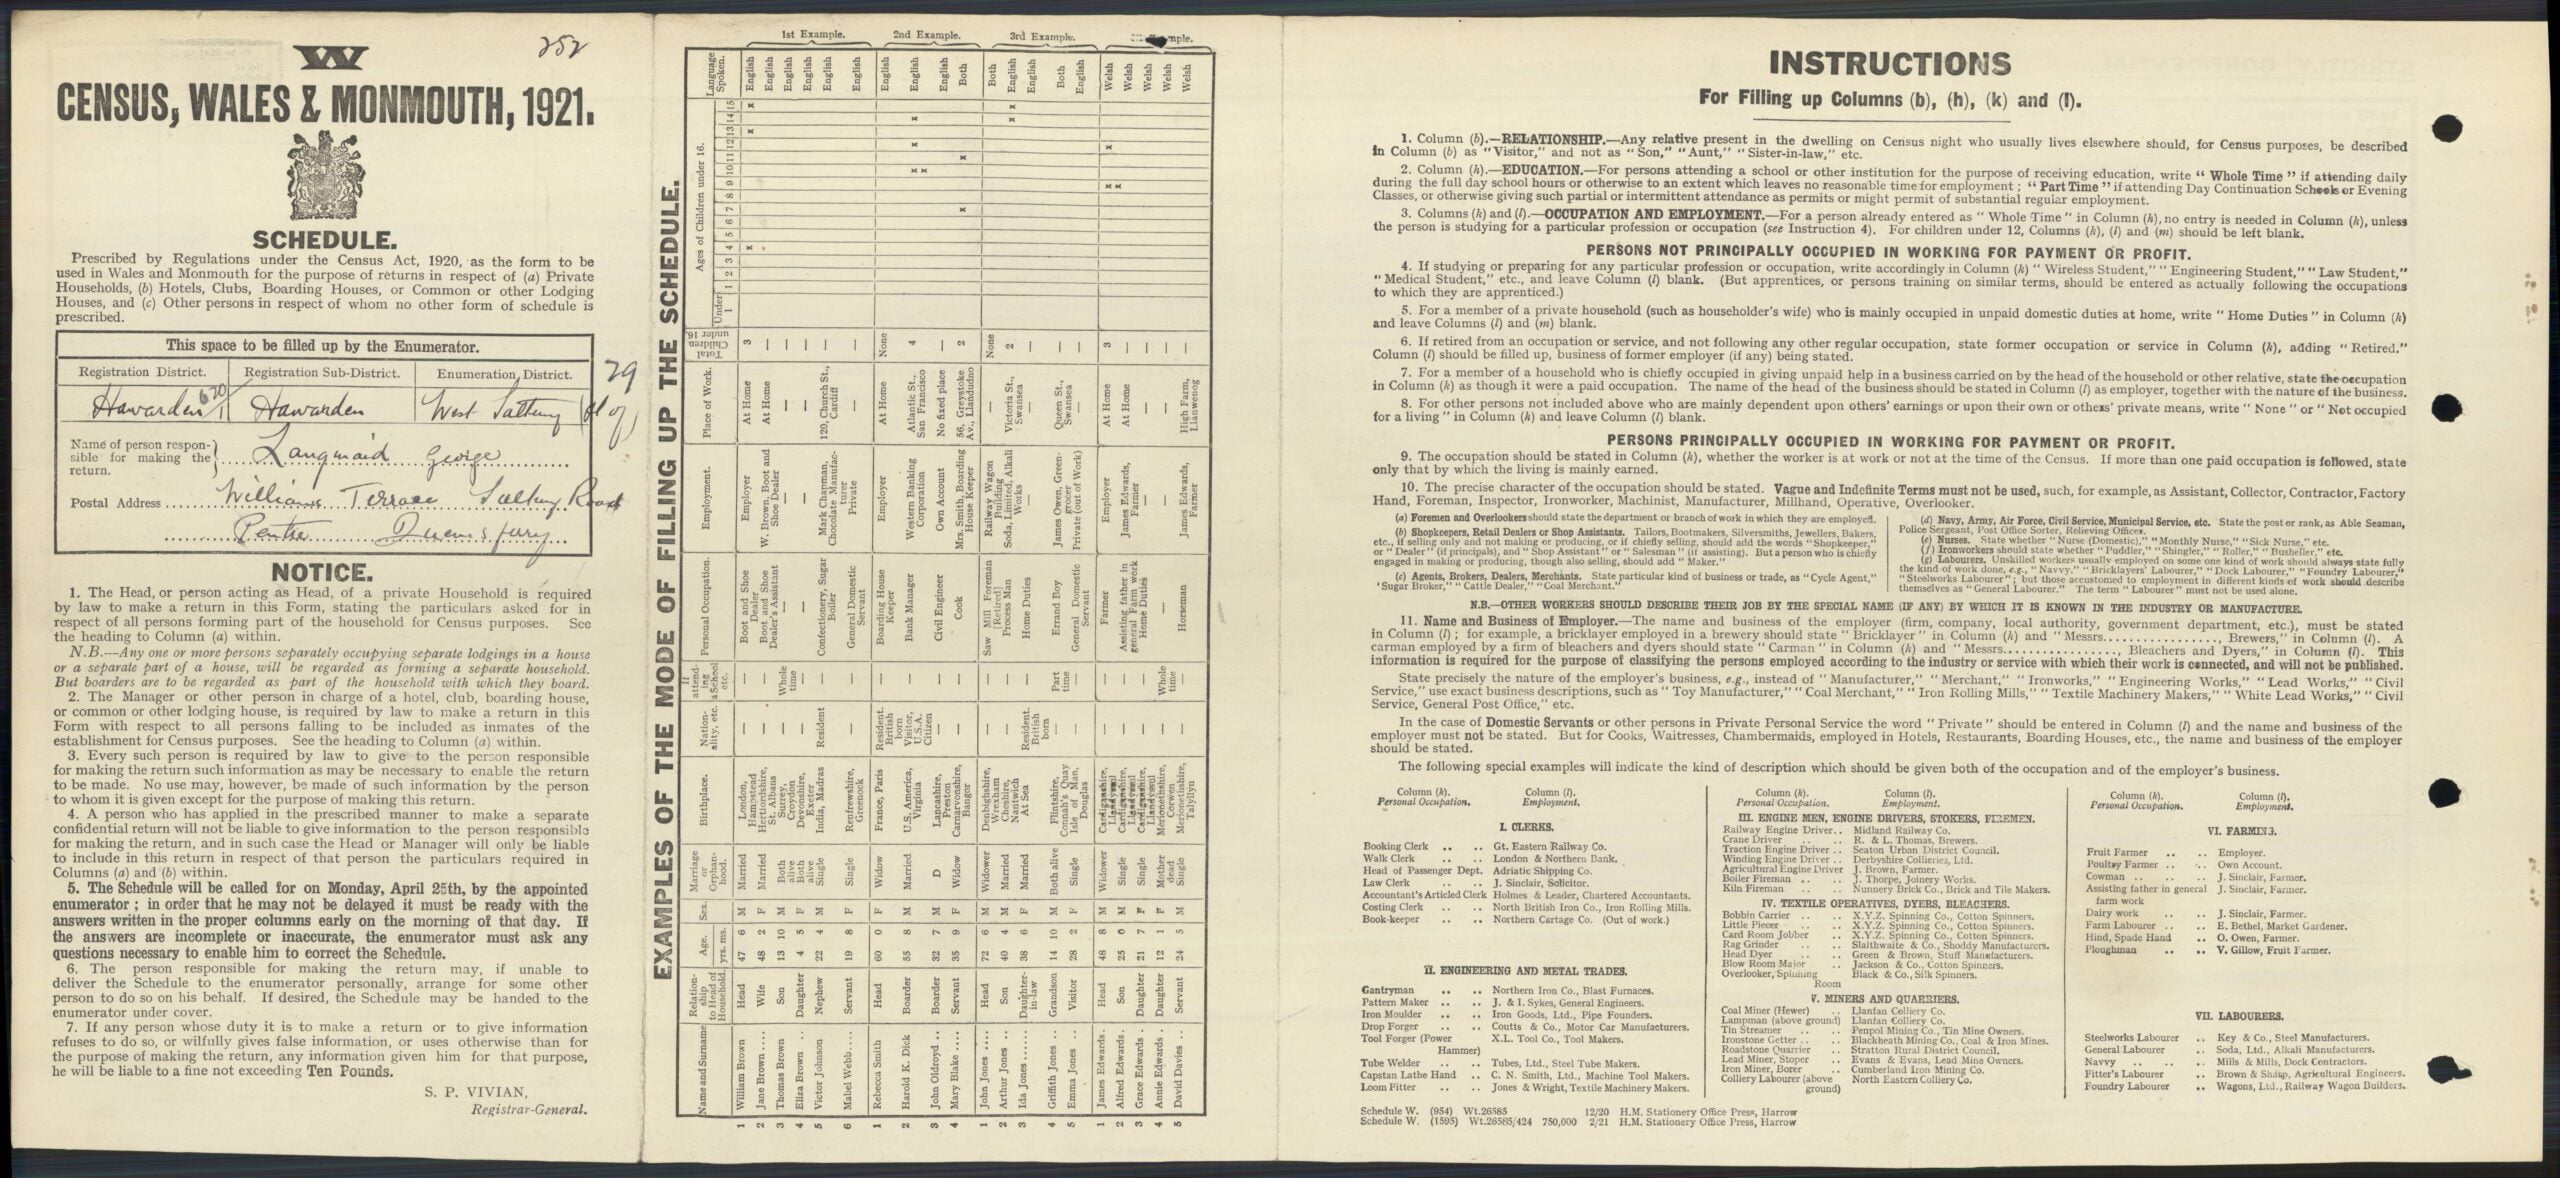 252
W
CENSUS, WALES & MONMOUTH, 1921.
SCHEDULE.
Prescribed by Regulations under the Census Act, 1920, as the form to be
used in Wales and Monmouth for the purpose of returns in respect of (a) Private
Households, (b) Hotels, Clubs, Boarding Houses, or Common or other Lodging
Houses, and (c) Other persons in respect of whom no other form of schedule is
prescribed.
This space to be filled up by the Enumerator.
Registration District. Registration Sub-District. Enumeration District.
29
Hawarden 620/1 Hawarden West Saltney
Name of person respon-
sible for making the
return. Langmaid George
Postal Address Williams Terrace Saltney Road
Pentre Queensferry
NOTICE.
1. The Head, or person acting as Head, of a private Household is required
by law to make a return in this Form, stating the particulars asked for in
respect of all persons forming part of the household for Census purposes. See
the heading to Column (a) within.
N.B.—Any one or more persons separately occupying separate lodgings in a house
or a separate part of a house, will be regarded as forming a separate household.
But boarders are to be regarded as part of the household with which they board.
2. The Manager or other person in charge of a hotel, club, boarding house,
or common or other lodging house, is required by law to make a return in this
Form with respect to all persons falling to be included as inmates of the
establishment for Census purposes. See the heading to Column (a) within.
3. Every such person is required by law to give to the person responsible
for making the return such information as may be necessary to enable the return
to be made. No use may, however, be made of such information by the person
to whom it is given except for the purpose of making this return.
4. A person who has applied in the prescribed manner to make a separate
confidential return will not be liable to give information to the person responsible
for making the return, and in such case the Head or Manager will only be liable
to include in this return in respect of that person the particulars required in
Columns (a) and (b) within.
5. The Schedule will be called for on Monday, April 25th, by the appointed
enumerator ; in order that he may not be delayed it must be ready with the
answers written in the proper columns early on the morning of that day. If
the answers are incomplete or inaccurate, the enumerator must ask any
questions necessary to enable him to correct the Schedule.
6. The person responsible for making the return may, if unable to
deliver the Schedule to the enumerator personally, arrange for some other
person to do so on his behalf. If desired, the Schedule may be handed to the
enumerator under cover.
7. If any person whose duty it is to make a return or to give information
refuses to do so, or wilfully gives false information, or uses otherwise than for
the purpose of making the return, any information given him for that purpose,
he will be liable to a fine not exceeding Ten Pounds.
S. P. VIVIAN,
Registrar-General.
EXAMPLES OF THE MODE OF FILLING UP THE SCHEDULE.
Name and Surname | Relation-ship to Head of Household. | Age. yrs. ms. | Sex. | Marriage or Orphan-hood. | Birthplace. | Nation-ality, etc. | If attend-ing a School etc. | Personal Occupation. | Employment. | Place of Work. | Total Children under 16. | Ages of Children under 16. Under 1 1 2 3 4 5 6 7 8 9 10 11 12 13 14 15 | Language Spoken.
1st Example.
1 William Brown | Head | 47 6 | M | Married | London, Hampstead | — | — | Boot and Shoe Dealer | Employer | At Home | 3 | x x x | English
2 Jane Brown | Wife | 48 2 | F | Married | Hertfordshire, St. Albans | — | — | Boot and Shoe Dealer's Assistant | W. Brown, Boot and Shoe Dealer | At Home | — | English
3 Thomas Brown | Son | 13 10 | M | Both alive | Surrey, Croydon | — | Whole time | — | — | — | — | English
4 Eliza Brown | Daughter | 4 5 | F | Both alive | Devonshire, Exeter | — | — | — | — | — | — | English
5 Victor Johnson | Nephew | 22 4 | M | Single | India, Madras | Resident | — | Confectionery, Sugar Boiler | Mark Chapman, Chocolate Manufac-turer | 120, Church St., Cardiff | — | English
6 Mabel Webb | Servant | 19 8 | F | Single | Renfrewshire, Greenock | — | — | General Domestic Servant | Private | — | — | English
2nd Example.
1 Rebecca Smith | Head | 60 0 | F | Widow | France, Paris | Resident. British born | — | Boarding House Keeper | Employer | At Home | None | English
2 Harold K. Dick | Boarder | 55 8 | M | Married | U.S. America, Virginia | Visitor, U.S.A. Citizen | — | Bank Manager | Western Banking Corporation | Atlantic St., San Francisco | 4 | x x x x | English
3 John Oldroyd | Boarder | 32 7 | M | D | Lancashire, Preston | — | — | Civil Engineer | Own Account | No fixed place | — | English
4 Mary Blake | Servant | 35 9 | F | Widow | Carnarvonshire, Bangor | — | — | Cook | Mrs. Smith, Boarding House Keeper | 56, Greystoke Av., Llandudno | 2 | x x | Both
3rd Example.
1 John Jones | Head | 72 6 | M | Widower | Denbighshire, Wrexham | — | — | Saw Mill Foreman [Retired] | Railway Wagon Building | — | None | Both
2 Arthur Jones | Son | 40 4 | M | Married | Cheshire, Nantwich | — | — | Process Man | Soda, Limited, Alkali Works | Victoria St., Swansea | 2 | x x | English
3 Ida Jones | Daughter-in-law | 38 6 | F | Married | At Sea | Resident. British born | — | Home Duties | — | — | — | English
4 Griffith Jones | Grandson | 14 10 | M | Both alive | Flintshire, Connah's Quay | — | Part time | Errand Boy | James Owen, Green-grocer | Queen St., Swansea | — | Both
5 Emma Jones | Visitor | 28 2 | F | Single | Isle of Man, Douglas | — | — | General Domestic Servant | Private (out of Work) | — | — | English
1 James Edwards | Head | 48 8 | M | Widower | Cardiganshire, Llandyssul | — | — | Farmer | Employer | At Home | 3 | x x x | Welsh
2 Alfred Edwards | Son | 25 0 | M | Single | Cardiganshire, Llandyssul | — | — | Assisting father in general Farm work | James Edwards, Farmer | At Home | — | Welsh
3 Grace Edwards | Daughter | 21 7 | F | Single | Cardiganshire, Llandyssul | — | — | Home Duties | — | — | — | Welsh
4 Annie Edwards | Daughter | 12 1 | F | Mother dead | Merionethshire, Corwen | — | Whole time | — | — | — | — | Welsh
5 David Davies | Servant | 24 5 | M | Single | Merionethshire, Talyllyn | — | — | Horseman | James Edwards, Farmer | High Farm, Llanwenog | — | Welsh
INSTRUCTIONS
For Filling up Columns (b), (h), (k) and (l).
1. Column (b).—RELATIONSHIP.—Any relative present in the dwelling on Census night who usually lives elsewhere should, for Census purposes, be described
in Column (b) as "Visitor," and not as "Son," "Aunt," "Sister-in-law," etc.
2. Column (h).—EDUCATION.—For persons attending a school or other institution for the purpose of receiving education, write "Whole Time" if attending daily
during the full day school hours or otherwise to an extent which leaves no reasonable time for employment ; "Part Time" if attending Day Continuation Schools or Evening
Classes, or otherwise giving such partial or intermittent attendance as permits or might permit of substantial regular employment.
3. Columns (k) and (l).—OCCUPATION AND EMPLOYMENT.—For a person already entered as "Whole Time" in Column (h), no entry is needed in Column (k), unless
the person is studying for a particular profession or occupation (see Instruction 4). For children under 12, Columns (k), (l) and (m) should be left blank.
PERSONS NOT PRINCIPALLY OCCUPIED IN WORKING FOR PAYMENT OR PROFIT.
4. If studying or preparing for any particular profession or occupation, write accordingly in Column (k) "Wireless Student," "Engineering Student," "Law Student,"
"Medical Student," etc., and leave Column (l) blank. (But apprentices, or persons training on similar terms, should be entered as actually following the occupations
to which they are apprenticed.)
5. For a member of a private household (such as householder's wife) who is mainly occupied in unpaid domestic duties at home, write "Home Duties" in Column (k)
and leave Columns (l) and (m) blank.
6. If retired from an occupation or service, and not following any other regular occupation, state former occupation or service in Column (k), adding "Retired."
Column (l) should be filled up, business of former employer (if any) being stated.
7. For a member of a household who is chiefly occupied in giving unpaid help in a business carried on by the head of the household or other relative, state the occupation
in Column (k) as though it were a paid occupation. The name of the head of the business should be stated in Column (l) as employer, together with the nature of the business.
8. For other persons not included above who are mainly dependent upon others' earnings or upon their own or others' private means, write "None" or "Not occupied
for a living" in Column (k) and leave Column (l) blank.
PERSONS PRINCIPALLY OCCUPIED IN WORKING FOR PAYMENT OR PROFIT.
9. The occupation should be stated in Column (k), whether the worker is at work or not at the time of the Census. If more than one paid occupation is followed, state
only that by which the living is mainly earned.
10. The precise character of the occupation should be stated. Vague and Indefinite Terms must not be used, such, for example, as Assistant, Collector, Contractor, Factory
Hand, Foreman, Inspector, Ironworker, Machinist, Manufacturer, Millhand, Operative, Overlooker.
(a) Foremen and Overlookers should state the department or branch of work in which they are employed.
(b) Shopkeepers, Retail Dealers or Shop Assistants. Tailors, Bootmakers, Silversmiths, Jewellers, Bakers,
etc., if selling only and not making or producing, or if chiefly selling, should add the words "Shopkeeper,"
or "Dealer" (if principals), and "Shop Assistant" or "Salesman" (if assisting). But a person who is chiefly
engaged in making or producing, though also selling, should add "Maker."
(c) Agents, Brokers, Dealers, Merchants. State particular kind of business or trade, as "Cycle Agent,"
"Sugar Broker," "Cattle Dealer," "Coal Merchant."
(d) Navy, Army, Air Force, Civil Service, Municipal Service, etc. State the post or rank, as Able Seaman,
Police Sergeant, Post Office Sorter, Relieving Officer.
(e) Nurses. State whether "Nurse (Domestic)," "Monthly Nurse," "Sick Nurse," etc.
(f) Ironworkers should state whether "Puddler," "Shingler," "Roller," "Busheller," etc.
(g) Labourers. Unskilled workers usually employed on some one kind of work should always state fully
the kind of work done, e.g., "Navvy," "Bricklayers' Labourer," "Dock Labourer," "Foundry Labourer,"
"Steelworks Labourer" ; but those accustomed to employment in different kinds of work should describe
themselves as "General Labourer." The term "Labourer" must not be used alone.
N.B.—OTHER WORKERS SHOULD DESCRIBE THEIR JOB BY THE SPECIAL NAME (IF ANY) BY WHICH IT IS KNOWN IN THE INDUSTRY OR MANUFACTURE.
11. Name and Business of Employer.—The name and business of the employer (firm, company, local authority, government department, etc.), must be stated
in Column (l) ; for example, a bricklayer employed in a brewery should state "Bricklayer" in Column (k) and "Messrs..................., Brewers," in Column (l). A
carman employed by a firm of bleachers and dyers should state "Carman" in Column (k) and "Messrs..................., Bleachers and Dyers," in Column (l). This
information is required for the purpose of classifying the persons employed according to the industry or service with which their work is connected, and will not be published.
State precisely the nature of the employer's business, e.g., instead of "Manufacturer," "Merchant," "Ironworks," "Engineering Works," "Lead Works," "Civil
Service," use exact business descriptions, such as "Toy Manufacturer," "Coal Merchant," "Iron Rolling Mills," "Textile Machinery Makers," "White Lead Works," "Civil
Service, General Post Office," etc.
In the case of Domestic Servants or other persons in Private Personal Service the word "Private" should be entered in Column (l) and the name and business of the
employer must not be stated. But for Cooks, Waitresses, Chambermaids, employed in Hotels, Restaurants, Boarding Houses, etc., the name and business of the employer
should be stated.
The following special examples will indicate the kind of description which should be given both of the occupation and of the employer's business.
Column (k). Personal Occupation. Column (l). Employment.
I. CLERKS.
Booking Clerk .. .. Gt. Eastern Railway Co.
Walk Clerk .. .. London & Northern Bank.
Head of Passenger Dept. Adriatic Shipping Co.
Law Clerk .. .. J. Sinclair, Solicitor.
Accountant's Articled Clerk Holmes & Leader, Chartered Accountants.
Costing Clerk .. .. North British Iron Co., Iron Rolling Mills.
Book-keeper .. .. Northern Cartage Co. (Out of work.)
II. ENGINEERING AND METAL TRADES.
Gantryman .. .. Northern Iron Co., Blast Furnaces.
Pattern Maker .. .. J. & I. Sykes, General Engineers.
Iron Moulder .. .. Iron Goods, Ltd., Pipe Founders.
Drop Forger .. .. Coutts & Co., Motor Car Manufacturers.
Tool Forger (Power Hammer) X.L. Tool Co., Tool Makers.
Tube Welder .. .. Tubes, Ltd., Steel Tube Makers.
Capstan Lathe Hand .. C. N. Smith, Ltd., Machine Tool Makers.
Loom Fitter .. .. Jones & Wright, Textile Machinery Makers.
Column (k). Personal Occupation. Column (l). Employment.
III. ENGINE MEN, ENGINE DRIVERS, STOKERS, FIREMEN.
Railway Engine Driver .. Midland Railway Co.
Crane Driver .. .. R. & L. Thomas, Brewers.
Traction Engine Driver .. Seaton Urban District Council.
Winding Engine Driver .. Derbyshire Collieries, Ltd.
Agricultural Engine Driver J. Brown, Farmer.
Boiler Fireman .. .. J. Thorpe, Joinery Works.
Kiln Fireman .. .. Nunnery Brick Co., Brick and Tile Makers.
IV. TEXTILE OPERATIVES, DYERS, BLEACHERS.
Bobbin Carrier .. .. X.Y.Z. Spinning Co., Cotton Spinners.
Little Piecer .. .. X.Y.Z. Spinning Co., Cotton Spinners.
Card Room Jobber .. X.Y.Z. Spinning Co., Cotton Spinners.
Rag Grinder .. .. Slaithwaite & Co., Shoddy Manufacturers.
Head Dyer .. .. Green & Brown, Stuff Manufacturers.
Blow Room Major .. Jackson & Co., Cotton Spinners.
Overlooker, Spinning Room Black & Co., Silk Spinners.
V. MINERS AND QUARRIERS.
Coal Miner (Hewer) .. Llanfan Colliery Co.
Lampman (above ground) Llanfan Colliery Co.
Tin Streamer .. .. Penpol Mining Co., Tin Mine Owners.
Ironstone Getter .. .. Blackheath Mining Co., Coal & Iron Mines.
Roadstone Quarrier .. Stratton Rural District Council.
Lead Miner, Stoper .. Evans & Evans, Lead Mine Owners.
Iron Miner, Borer .. Cumberland Iron Mining Co.
Colliery Labourer (above ground) North Eastern Colliery Co.
Column (k). Personal Occupation. Column (l). Employment.
VI. FARMING.
Fruit Farmer .. .. Employer.
Poultry Farmer .. .. Own Account.
Cowman .. .. .. J. Sinclair, Farmer.
Assisting father in general farm work J. Sinclair, Farmer.
Dairy work .. .. J. Sinclair, Farmer.
Farm Labourer .. .. E. Bethel, Market Gardener.
Hind, Spade Hand .. O. Owen, Farmer.
Ploughman .. .. V. Gillow, Fruit Farmer.
VII. LABOURERS.
Steelworks Labourer .. Key & Co., Steel Manufacturers.
General Labourer .. Soda, Ltd., Alkali Manufacturers.
Navvy .. .. .. Mills & Mills, Dock Contractors.
Fitter's Labourer .. Brown & Sharp, Agricultural Engineers.
Foundry Labourer .. Wagons, Ltd., Railway Wagon Builders.
Schedule W. (954) Wt.26585 12/20 H.M. Stationery Office Press, Harrow
Schedule W. (1595) Wt.26585/424 750,000 2/21 H.M. Stationery Office Press, Harrow